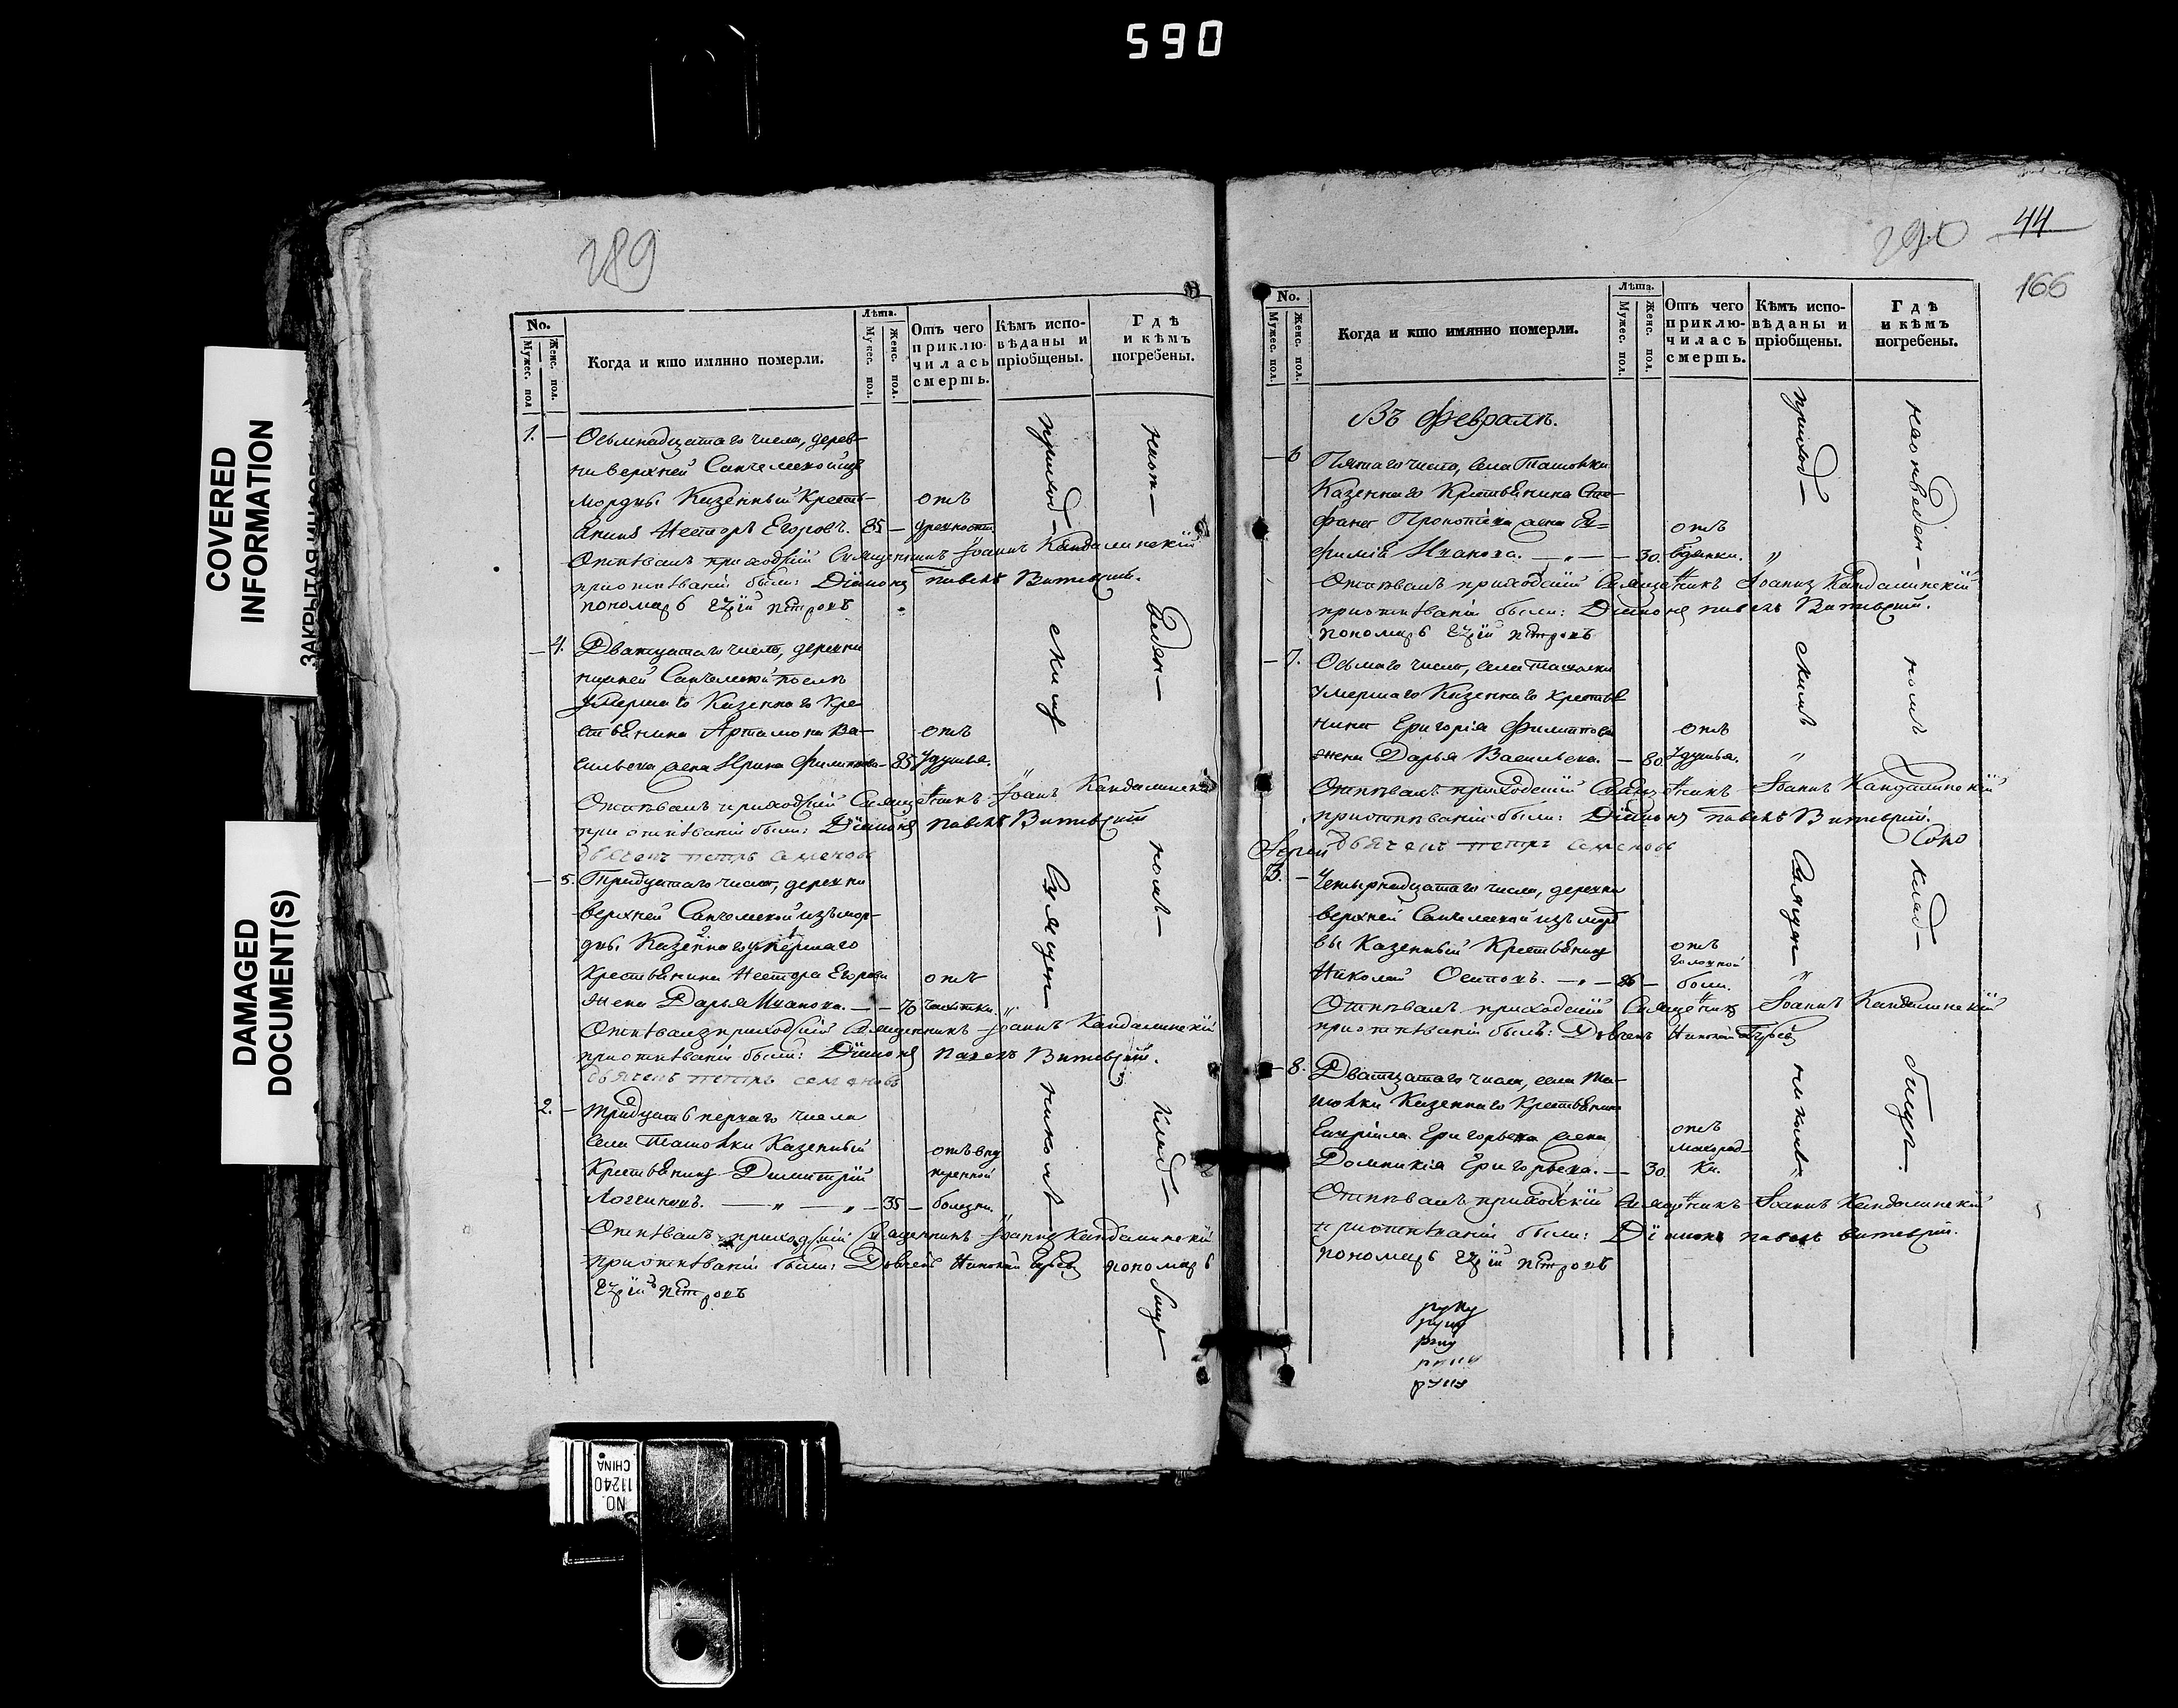 590
COVERED
INFORMATION
DAMAGED
DOCUMENT(S)
289
No.
Мужес. пол
Женс. пол.
Когда и кто имянно померли.
Лѣта.
Мужес. пол.
Женс. пол.
Отъ чего
приклю-
чилась
смерть.
Кѣмъ испо-
вѣданы и
пріобщены.
Гдѣ
и кѣмъ
погребены.
1. — Осьмнадцатаго числа, дерев-
ни верхней Санчелеевской изъ
мордвы Казенный Кресть-
янинъ Несторъ Егоровъ. 85 —
отъ
дряхлости
Отпѣвалъ приходскій Священникъ Іоаннъ Кандалинскій
при отпѣваніи были: Діаконъ Павелъ
пономарь Петровъ
— 4. Двадцатаго числа, деревни
нижней
умершаго Казеннаго Кре-
стьянина Артамона Ва-
сильева жена Ирина Филипова — 85
отъ
удушья.
Отпѣвалъ приходскій Священникъ Іоаннъ Кандалинскій
при отпѣваніи были: Діаконъ Павелъ
дьячекъ Петръ Семеновъ
— 5. Тридцатаго числа, деревни
верхней изъ мор-
двы Казеннаго умершаго
Крестьянина Нестора Егорова
жена Дарья Иванова. — — 70
отъ
чахотки.
Отпѣвалъ приходскій Священникъ Іоаннъ Кандалинскій
при отпѣваніи были: Діаконъ Павелъ
дьячекъ Петръ Семеновъ
2. — Тридцать перваго числа
села Ташовки Казенный
Крестьянинъ Димитрій
— „ — „ — 35 —
отъ вну
тренной
болезни.
Отпѣвалъ приходскій Священникъ Іоаннъ Кандалинскій
при отпѣваніи были: Дьячекъ Николай пономарь
Петровъ
приход-
скимъ
Священ-
никомъ
на от-
веден-
номъ
клад-
бищѣ
NO.
11240
CHINA
290
44
166
No.
Мужес. пол.
Женс. пол.
Когда и кто имянно померли.
Лѣта.
Мужес. пол.
Женс. пол.
Отъ чего
приклю-
чилась
смерть.
Кѣмъ испо-
вѣданы и
пріобщены.
Гдѣ
и кѣмъ
погребены.
Въ Февралѣ.
— 6 Пятаго число, села Ташовки
Казеннаго Крестьянина Сте-
фана Прокопіева жена Ев-
фимія Иванова. — „ — — 30.
отъ
Отпѣвалъ приходскій Священникъ Іоаннъ Кандалинскій
при отпѣваніи были: Діаконъ Павелъ
пономарь Петровъ
— 7. Осьмаго числа, села Ташовки
умершаго Казеннаго Крестья
нина Григорія Филиппова
жена Дарья Васильева. — 80.
отъ
удушья.
Отпѣвалъ приходскій Священникъ Іоаннъ Кандалинскій
при отпѣваніи были: Діаконъ Павелъ
дьячекъ Петръ Семеновъ
3. — Четырнадцатаго числа, деревни
верхней изъ морд
вы Казенный Крестьянинъ
Николай Осиповъ. — „ — 26 —
отъ
головной
боли.
Отпѣвалъ приходскій Священникъ Іоаннъ Кандалинскій
при отпѣваніи былъ: Дьячекъ Николай
— 8. Двадцатаго числа, села Та-
шовки Казеннаго Крестьянина
Гавріила Григорьева жена
Домникія Григорьева. — — 30.
отъ
Отпѣвалъ приходскій Священникъ Іоаннъ Кандалинскій
при отпѣваніи были: Діаконъ Павелъ
пономарь Петровъ
приход-
скимъ
Священ-
никомъ
на отведен-
номъ
клад-
бищѣ.
руку